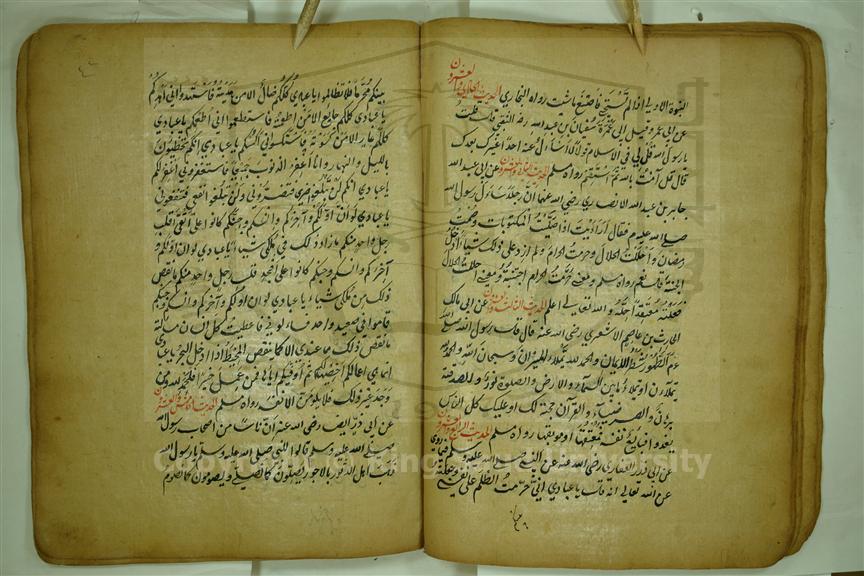 النبوة الاولى اذا لم تستح فاصنع ما شئت رواه البخاري الحديث الحادي والعشرون
عن ابي عمرو وقيل ابي عمرة سفيان بن عبد الله رضي الله الثقفي قال قلت
يا رسول الله قل لي في الاسلام قولا لا اسأل عنه احدا غيرك بعدك
قال قل آمنت بالله ثم استقم رواه مسلم الحديث الثاني والعشرون عن ابي عبد الله
جابر بن عبد الله الانصاري رضي الله عنهما ان رجلا سأل رسول الله
صلى الله عليه وسلم فقال ارأيت اذا صليت المكتوبات وصمت
رمضان واحللت الحلال وحرمت الحرام ولم ازد على ذلك شيئا أدخل
الجنة قال نعم رواه مسلم ومعنى حرمت الحرام اجتنبته ومعنى احللت الحلال
فعلته معتقدا حله والله تعالى اعلم الحديث الثالث والعشرون عن ابي مالك
الحارث بن عاصم الاشعري رضي الله عنه قال قال رسول الله صلى الله
عم الطهور شطر الايمان والحمد لله تملأ الميزان وسبحان الله والحمد لله
تملآن او تملأ ما بين السماء والارض والصلوة نور والصدقة
برهان والصبر ضياء والقرآن حجة لك او عليك كل الناس
يغدو فبايع نفسه فمعتقها او موبقها رواه مسلم الحديث الرابع والعشرون
عن ابي ذر الغفاري رضي الله عنه عن النبي صلى الله عليه وسلم فيما روى
عن الله تعالى انه قال يا عبادي اني حرمت الظلم على نفسي وجعلته
بينكم محرما فلا تظالموا يا عبادي كلكم ضال الا من هديته فاستهدوني اهدكم
يا عبادي كلكم جائع الا من اطعمته فاستطعموني اطعمكم يا عبادي
كلكم عار الا من كسوته فاستكسوني اكسكم يا عبادي انكم تخطئون
بالليل والنهار وانا اغفر الذنوب جميعا فاستغفروني اغفر لكم
يا عبادي انكم لن تبلغوا ضري فتضروني ولن تبلغوا نفعي فتنفعوني
يا عبادي لو ان اولكم وآخركم وانسكم وجنكم كانوا على اتقى قلب
رجل واحد منكم ما زاد ذلك في ملكي شيئا يا عبادي لو ان اولكم و
آخركم وانسكم وجنكم كانوا على افجر قلب رجل واحد منكم ما نقص
ذلك من ملكي شيئا يا عبادي لو ان اولكم وآخركم وانسكم وجنكم
قاموا في صعيد واحد فسألوني فاعطيت كل انسان مسألته
ما نقص ذلك مما عندي الا كما ينقص المخيط اذا ادخل البحر يا عبادي
انما هي اعمالكم احصيها لكم ثم اوفيكم اياها فمن عمل خيرا فليحمد الله ومن
وجد غير ذلك فلا يلومن الا نفسه رواه مسلم الحديث الخامس والعشرون
عن ابي ذر ايضا رضي الله عنه ان ناسا من اصحاب رسول الله
صلى الله عليه وسلم قالوا للنبي صلى الله عليه وسلم يا رسول الله
ذهب اهل الدثور بالاجور يصلون كما نصلي ويصومون كما نصوم